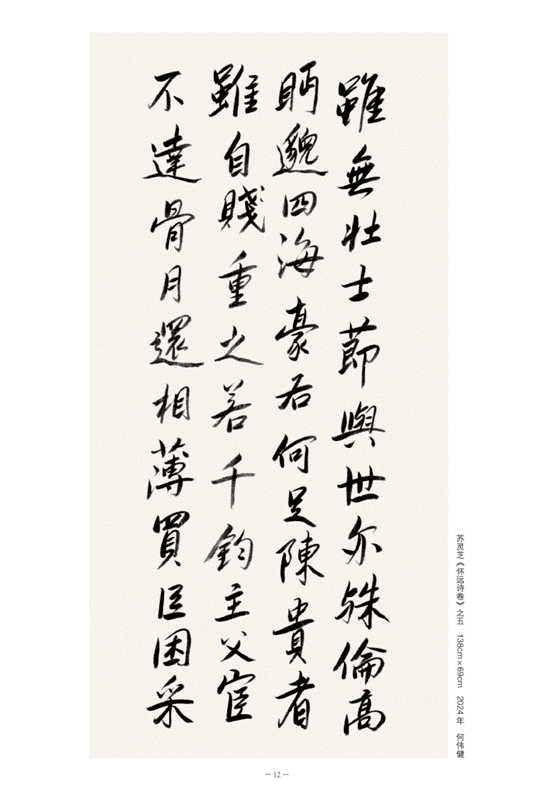 雖無壯士莭與世亦殊倫高
眄邈四海豪右何足陳貴者
雖自賤重之若千鈞主父宦
不達骨月還相薄買臣困采
苏灵芝《怀远诗卷》之五 138cm×69cm 2024年 何伟健
— 12 —